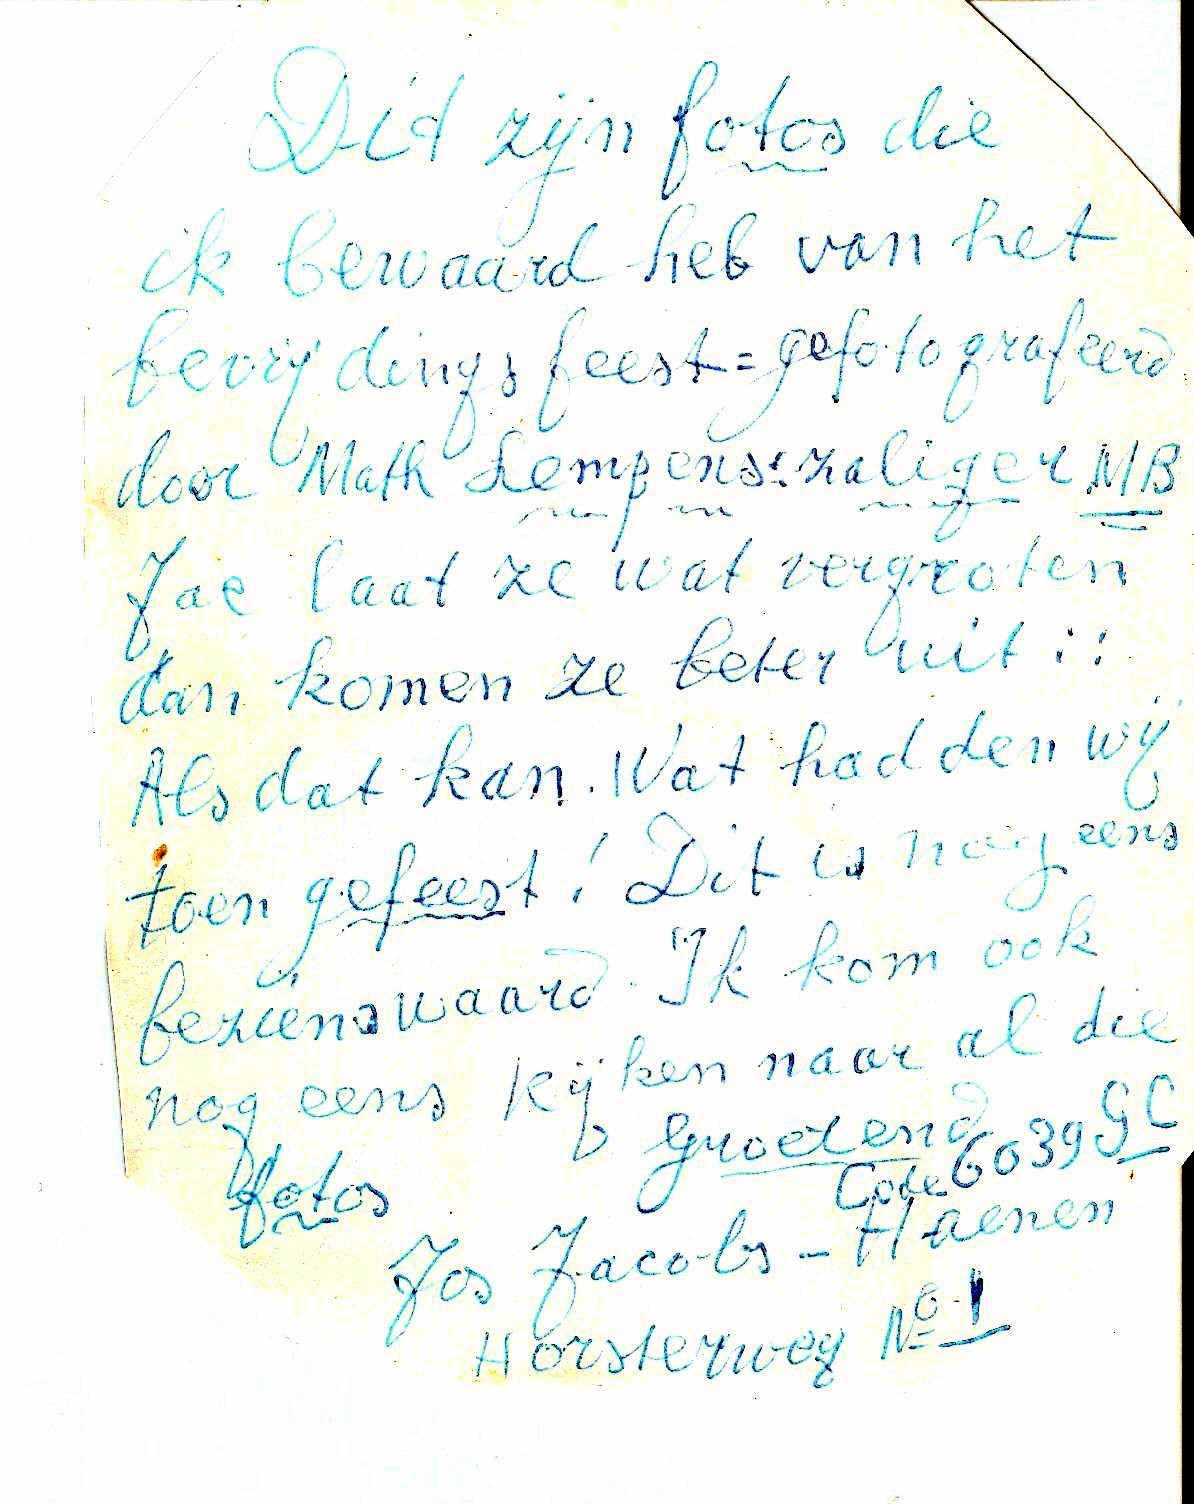 Dit zijn fotos die
ik bewaard heb van het
bevrijdingsfeest = gefotografeerd
door Math Lempens: zaliger MB
Jac laat ze wat vergroten
dan komen ze beter uit !!
Als dat kan. Wat hadden wij
toen gefeest! Dit is nog eens
bezienswaard. Ik kom ook
nog eens kijken naar al die
fotos
Groetend
Code 6039 GC
Jos Jacobs - Haenen
Horsterweg No 1